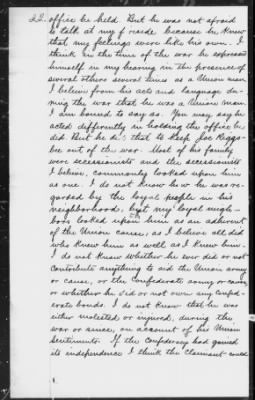 22. office he held. But he was not afraid
to talk at my fireside because he knew
that my feelings were like his own. I
think in the time of the war he expressed
himself in my hearing in the presence of
several others several times as a Union man.
I believe from his acts and language du-
ring the war that he was a Union man.
I am bound to say so. You may say he
acted differently in holding the office he
did. But he did that to keep Joe Boggs
bee out of the war. Most of his family
were secessionists and the secessionists
I believe, commonly looked upon him
as one. I do not know how he was re-
garded by the loyal people in his
neighborhood, but my loyal neigh-
bors looked upon him as an adherent
of the Union cause, as I believe all did
who knew him as well as I knew him.
I do not know whether he ever did or not
contribute anything to aid the Union army
or cause, or the Confederate army or cause
or whether he did or not own any Confed-
erate bonds. I do not know that he was
either molested or injured, during the
war or since, on account of his Union
Sentiments. If the Confederacy had gained
its independence I think the claimant could